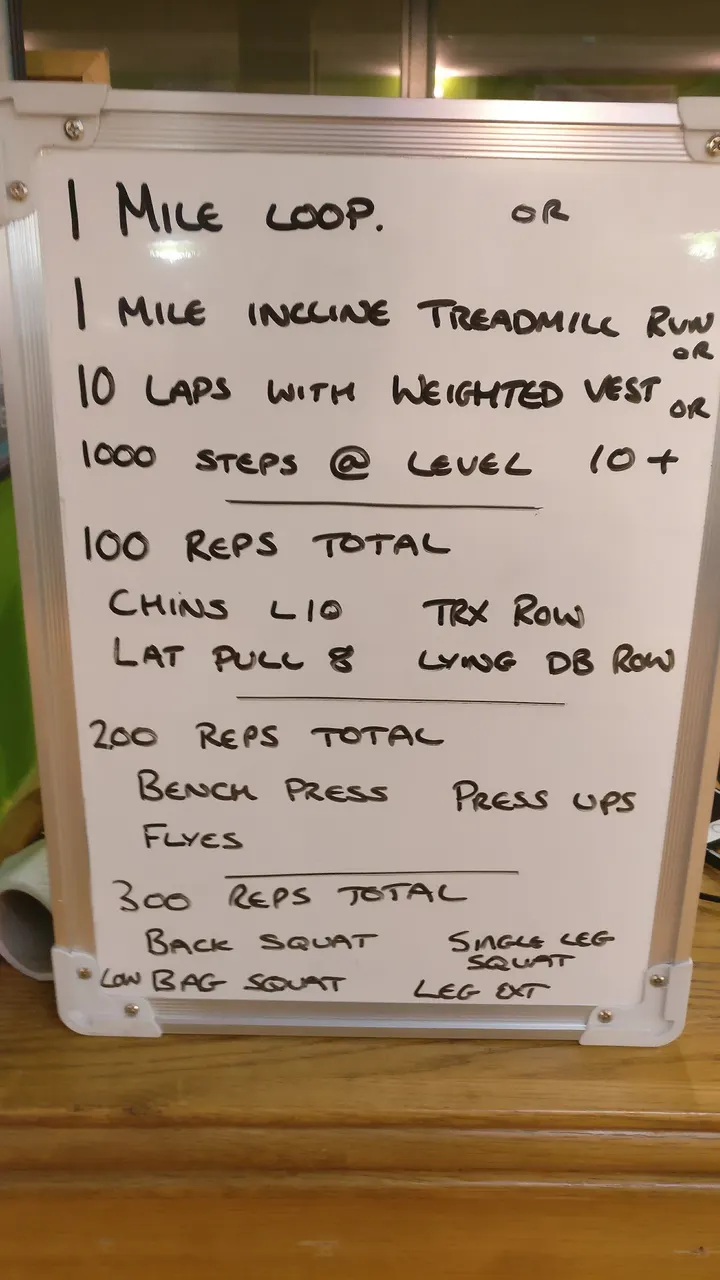 1 MILE LOOP. OR
1 MILE INCLINE TREADMILL RUN
OR
10 LAPS WITH WEIGHTED VEST OR
1000 STEPS @ LEVEL 10+
100 REPS TOTAL
CHINS L10 TRX ROW
LAT PULL 8 LYING DB ROW
200 REPS TOTAL
BENCH PRESS PRESS UPS
FLYES
300 REPS TOTAL
BACK SQUAT SINGLE LEG SQUAT
LOW BAG SQUAT LEG EXT